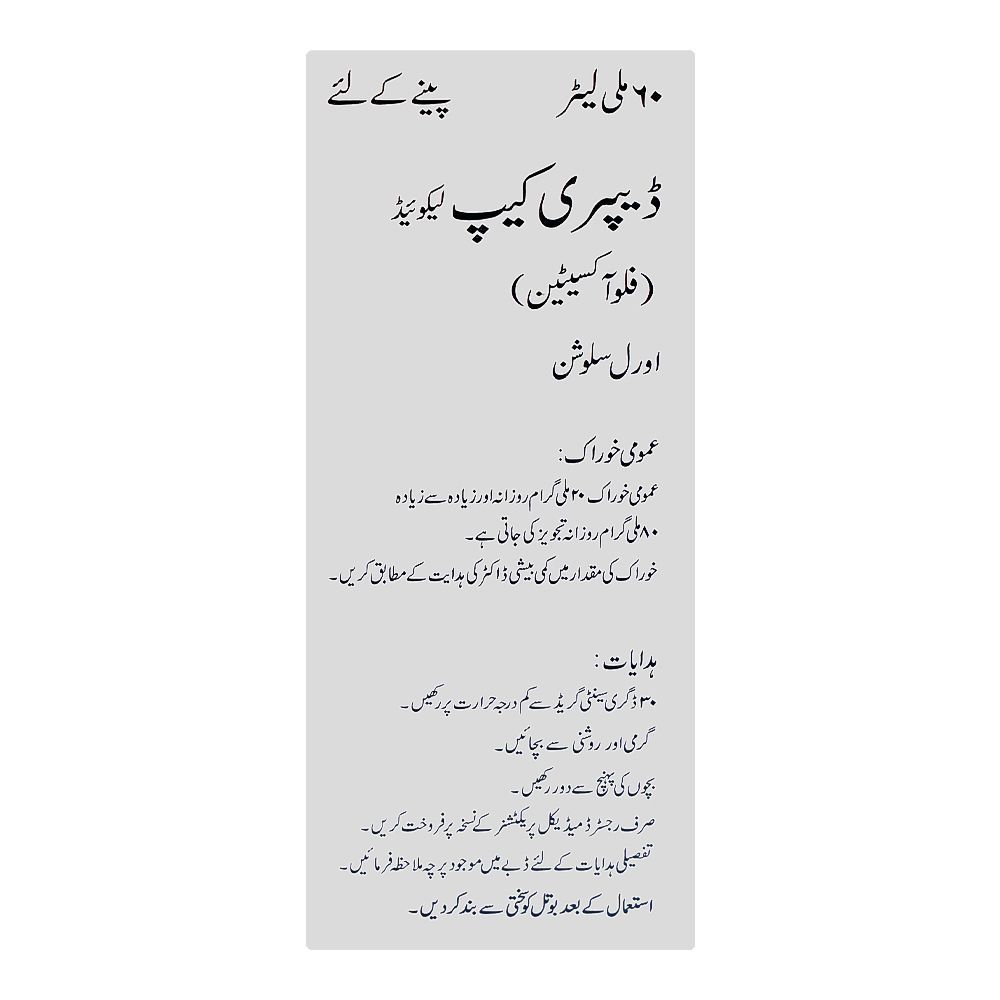 ۶۰ ملی لیٹر پینے کے لئے
ڈیپری کیپ لیکوئیڈ
(فلوآکسیٹین)
اورل سلوشن
عمومی خوراک:
عمومی خوراک ۲۰ ملی گرام روزانہ اور زیادہ سے زیادہ
۸۰ ملی گرام روزانہ تجویز کی جاتی ہے۔
خوراک کی مقدار میں کمی بیشی ڈاکٹر کی ہدایت کے مطابق کریں۔
ہدایات:
۳۰ ڈگری سینٹی گریڈ سے کم درجہ حرارت پر رکھیں۔
گرمی اور روشنی سے بچائیں۔
بچوں کی پہنچ سے دور رکھیں۔
صرف رجسٹرڈ میڈیکل پریکٹشنر کے نسخہ پر فروخت کریں۔
تفصیلی ہدایات کے لئے ڈبے میں موجود پرچہ ملاحظہ فرمائیں۔
استعمال کے بعد بوتل کو سختی سے بند کر دیں۔